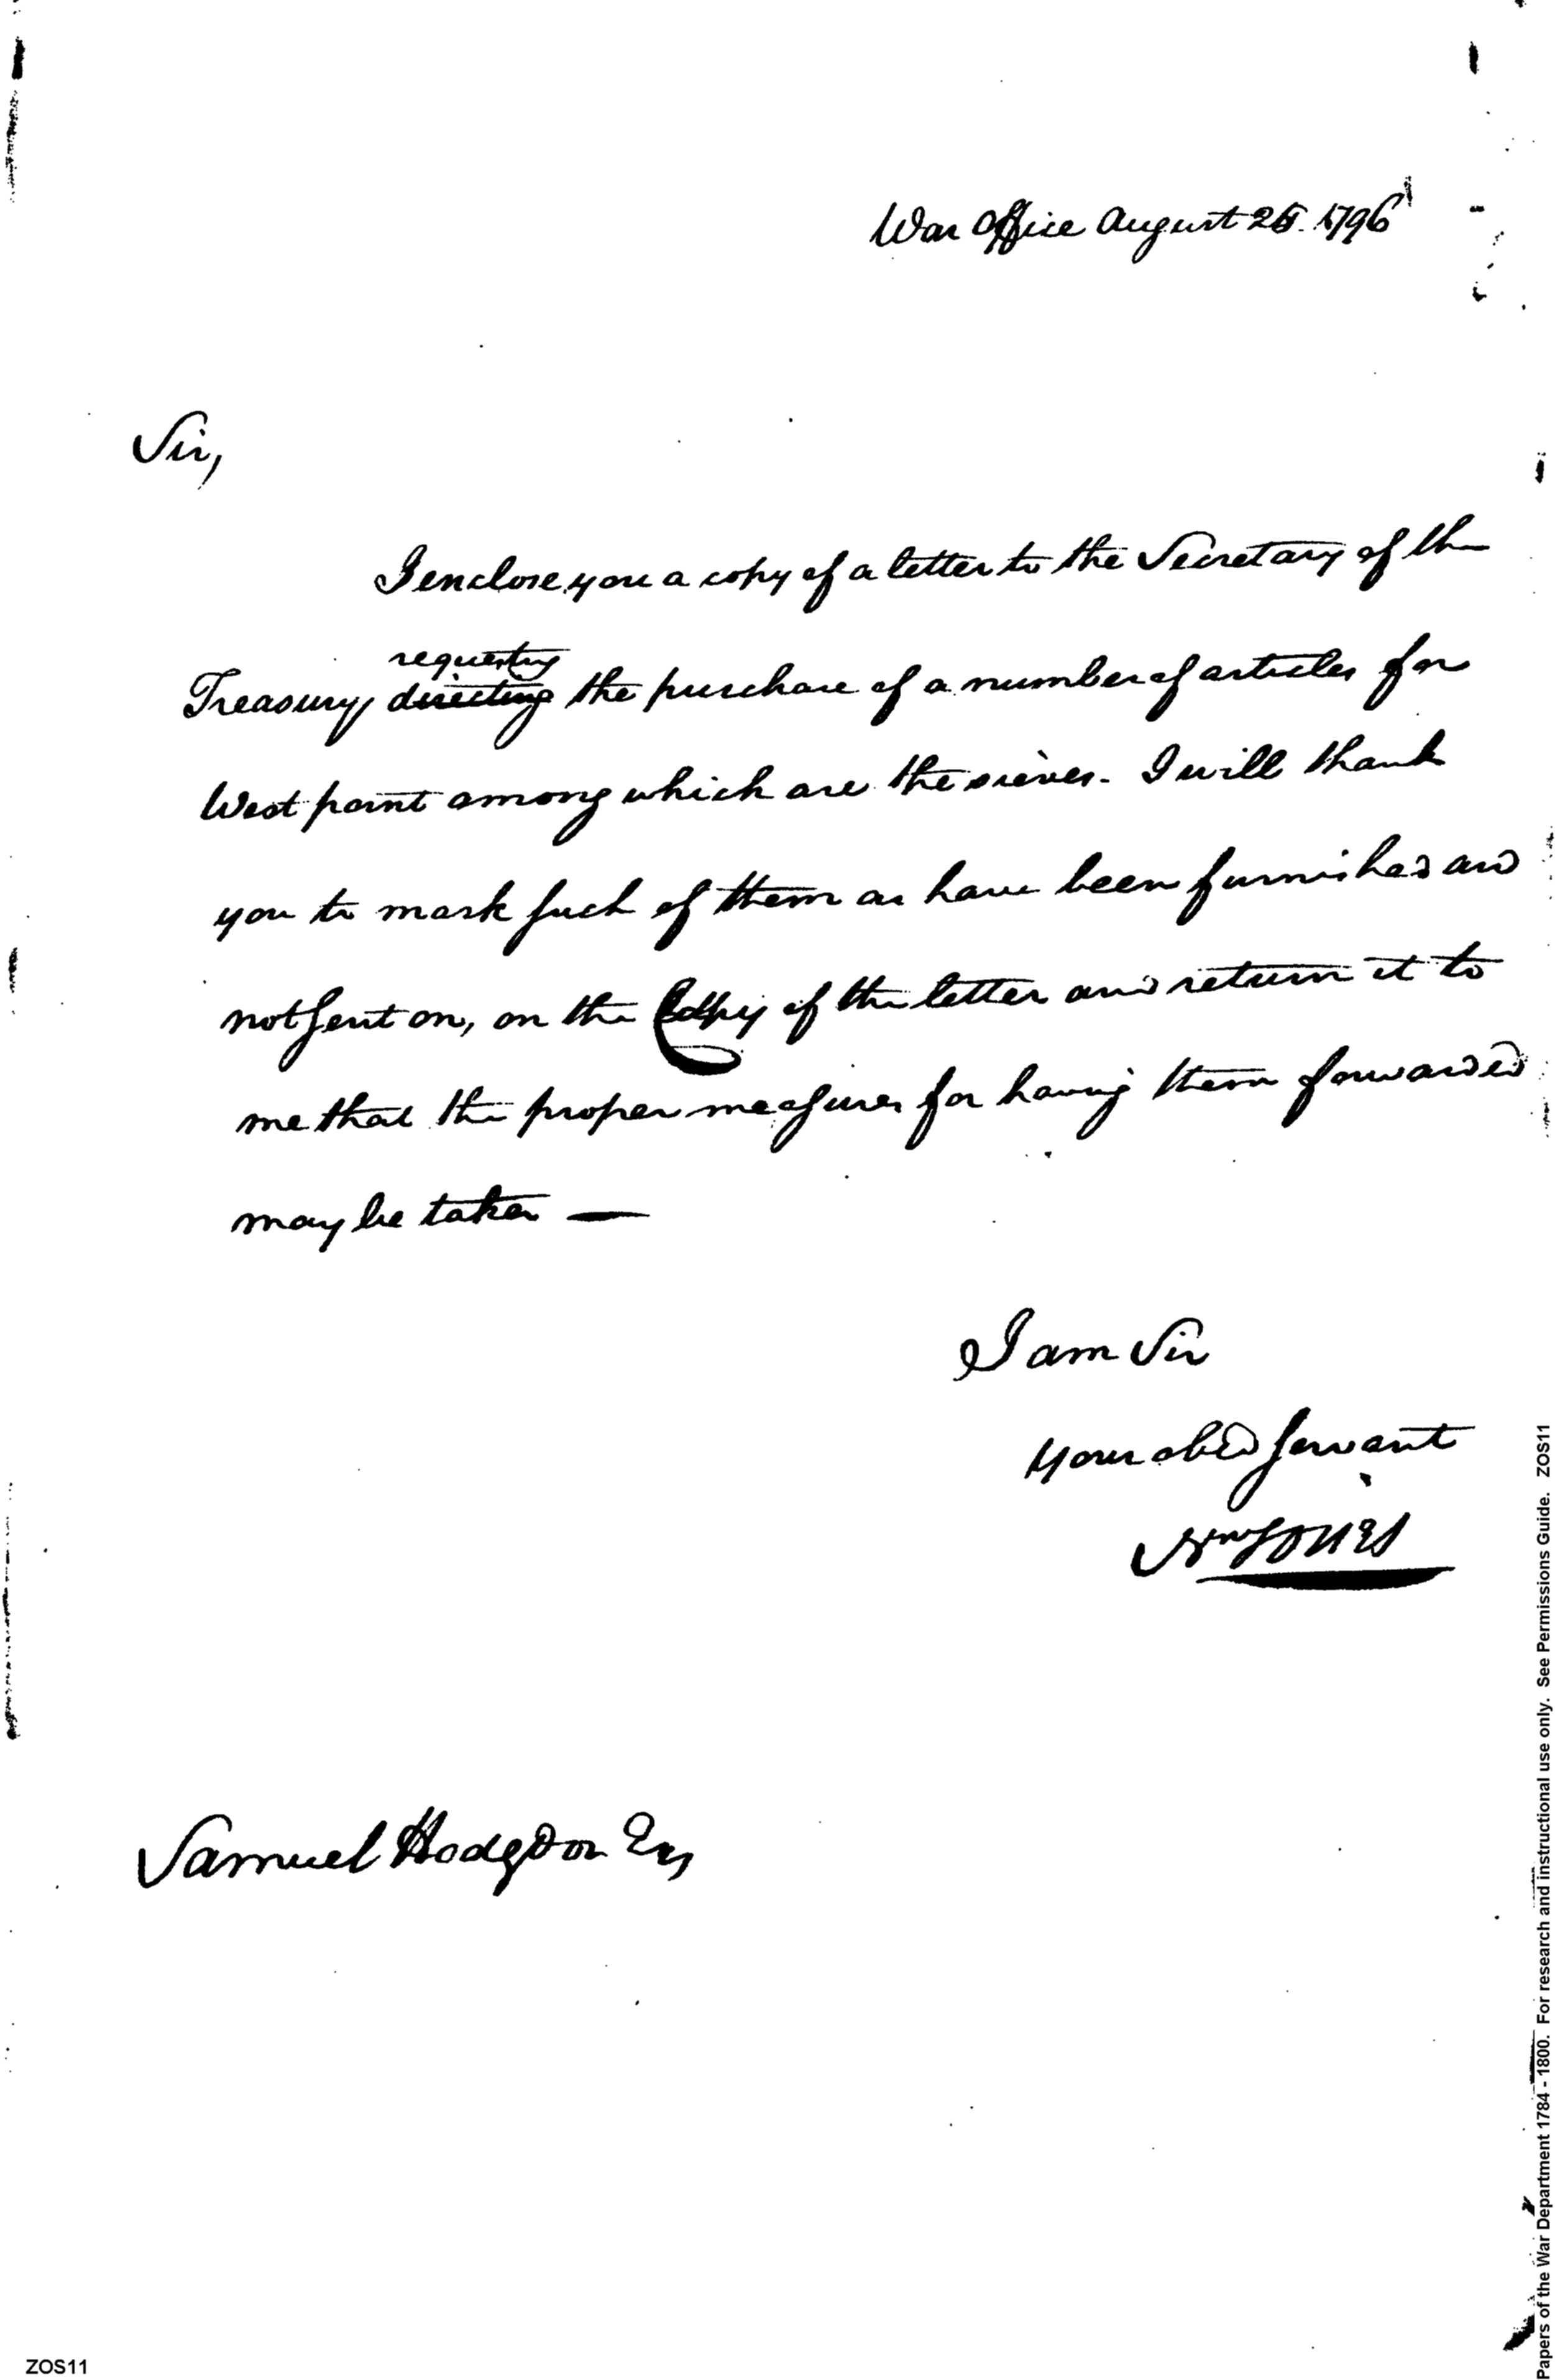 War Office August 25. 1796
Sir,
I enclose you a copy of a letter to the Secretary of the
requesting
Treasury directing the purchase of a number of articles for
West point among which are the sieves. I will thank
you to mark such of them as have been furnished and
not sent on, on the Copy of the letter and return it to
me that the proper measures for having them forwarded
may be taken —
I am Sir
your obed servant
Jones
Samuel Hodgdon Esq
ZOS11
Papers of the War Department 1784 - 1800. For research and instructional use only. See Permissions Guide. ZOS11